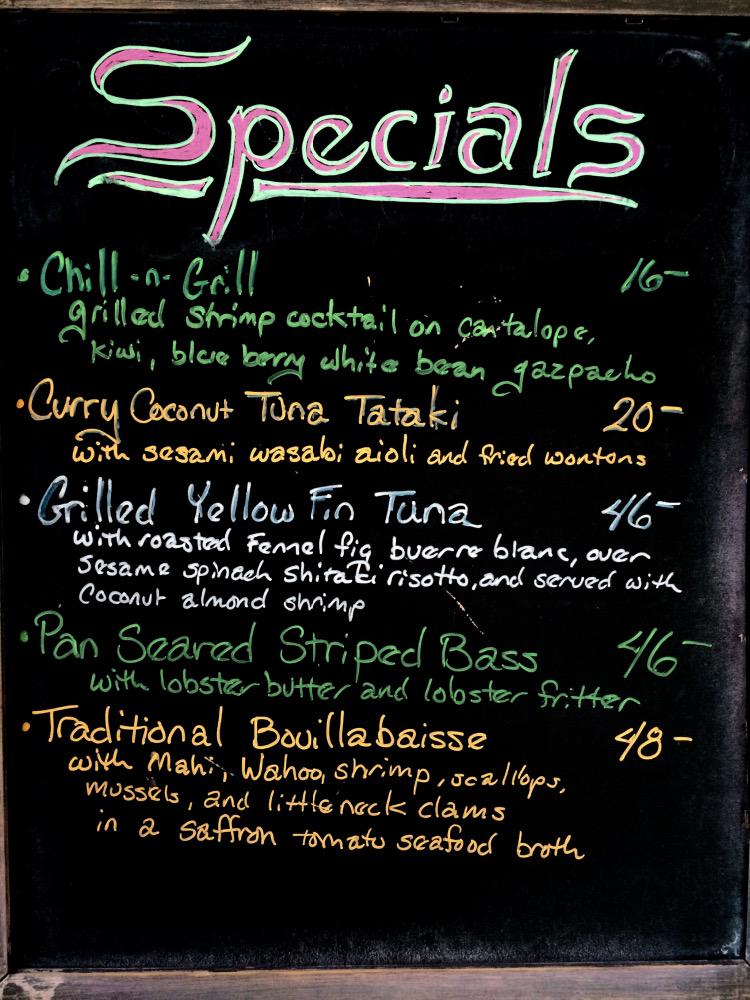 Specials
• Chill-n-Grill 16-
grilled shrimp cocktail on cantalope,
kiwi, blue berry white bean gazpacho
• Curry Coconut Tuna Tataki 20-
with sesami wasabi aioli and fried wontons
• Grilled Yellow Fin Tuna 46-
with roasted Fennel fig buerre blanc, over
sesame spinach shitaki risotto, and served with
Coconut almond shrimp
• Pan Seared Striped Bass 46-
with lobster butter and lobster fritter
• Traditional Bouillabaisse 48-
with Mahi, Wahoo, shrimp, scallops,
mussels, and little neck clams
in a saffron tomato seafood broth